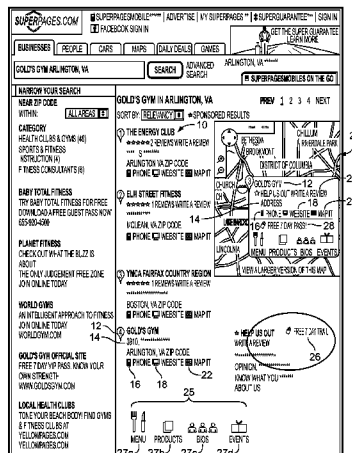 SUPERPAGES.COM
SUPERPAGESMOBILE | ADVERTISE | MY SUPERPAGES | SUPERGUARANTEE | SIGN IN
FACEBOOK SIGN IN
GET THE SUPER GUARANTEE
LEARN MORE
BUSINESSES PEOPLE CARS MAPS DAILY DEALS GAMES
GOLD'S GYM ARLINGTON, VA SEARCH ADVANCED SEARCH ARLINGTON, VA
SUPERPAGESMOBILES ON THE GO
NARROW YOUR SEARCH
NEAR ZIP CODE
WITHIN: ALL AREAS
CATEGORY
HEALTH CLUBS & GYMS (46)
SPORTS & FITNESS
INSTRUCTION (4)
FITNESS CONSULTANTS (6)
BABY TOTAL FITNESS
TRY BABY TOTAL FITNESS FOR FREE
DOWNLOAD A FREE GUEST PASS NOW
655-920-4500
PLANET FITNESS
CHECK OUT WHAT THE BLIZZ IS
ABOUT
THE ONLY JUDGEMENT FREE ZONE
JOIN ONLINE TODAY
WORLD GYMS
AN INTELLIGENT APPROACH TO FITNESS
JOIN ONLINE TODAY
WORLDGYM.COM
GOLD'S GYM OFFICIAL SITE
FREE 7 DAY VIP PASS. KNOW YOUR
OWN STRENGTH
WWW.GOLDSGYN.COM
LOCAL HEALTH CLUBS
TONE YOUR BEACH BODY! FIND GYMS
& FITNESS CLUBS AT
YELLOWPAGES.COM
YELLOWPAGES.COM
GOLD'S GYM IN ARLINGTON, VA PREV 1 2 3 4 NEXT
SORT BY: RELEVANCY *SPONSORED RESULTS
1 THE ENERGY CLUB 10
***** 2 REVIEWS WRITE A REVIEW
ARLINGTON VA ZIP CODE
PHONE WEBSITE MAP IT
2 ELM STREET FITNESS
***** 1 REVIEWS WRITE A REVIEW
MCLEAN, VA ZIP CODE
PHONE WEBSITE MAP IT
3 YMCA FAIRFAX COUNTRY REGION
***** 1 REVIEWS WRITE A REVIEW
BOSTON, VA ZIP CODE
PHONE WEBSITE MAP IT
12
4 GOLD'S GYM
14
3910,
ARLINGTON, VA ZIP CODE
PHONE WEBSITE MAP IT
16 18 22
BETHESDA
BROOKMONT
CHILLUM
RIVERDALE PARK
DISTRICT OF COLUMBIA
CHURCH
LINCOLNIA
GOLD'S GYM 12
HELP US OUT WRITE A REVIEW
14
ADDRESS 18
PHONE WEBSITE MAP IT
16 FREE 7 DAY PASS! 28
MENU PRODUCTS BIOS EVENTS
VIEW A LARGER VERSION OF THIS MAP
HELP US OUT
WRITE A REVIEW
FREE 7 DAY TRIAL
26
OPINION,
KNOW WHAT YOU
ABOUT US
25
MENU PRODUCTS BIOS EVENTS
27a 27b 27c 27d